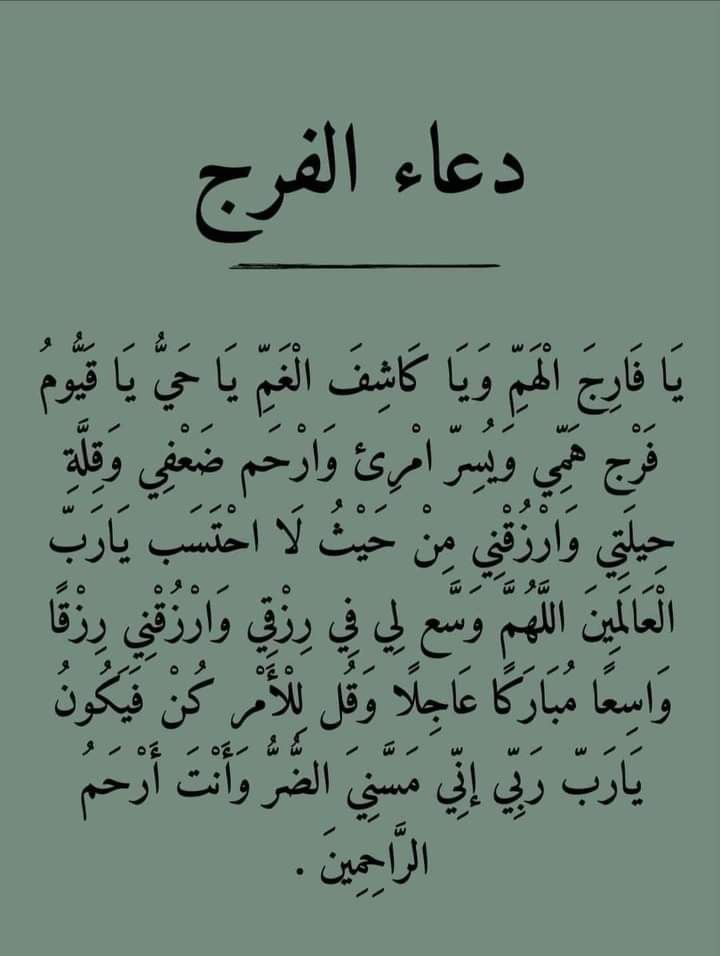 دعاء الفرج
يَا فَارِجَ الْهَمِّ وَيَا كَاشِفَ الْغَمِّ يَا حَيُّ يَا قَيُّومُ
فَرْج هَمِّي وَيُسِرّ امْرِئ وَارْحَم ضَعْفِي وَقِلَّةِ
حِيلَتِي وَارْزُقْنِي مِنْ حَيْثُ لَا احْتَسَب يَارَبّ
الْعَالَمِينَ اللَّهُمَّ وَسَّع لِي فِي رِزْقِي وَارْزُقْنِي رِزْقًا
وَاسِعًا مُبَارَكًا عَاجِلًا وَقُل لِلْأَمْر كُنْ فَيَكُونُ
يَارَبّ رَبِّي إنِّي مَسَّنِيَ الضُّرُّ وَأَنْتَ أَرْحَمُ
الرَّاحِمِينَ .